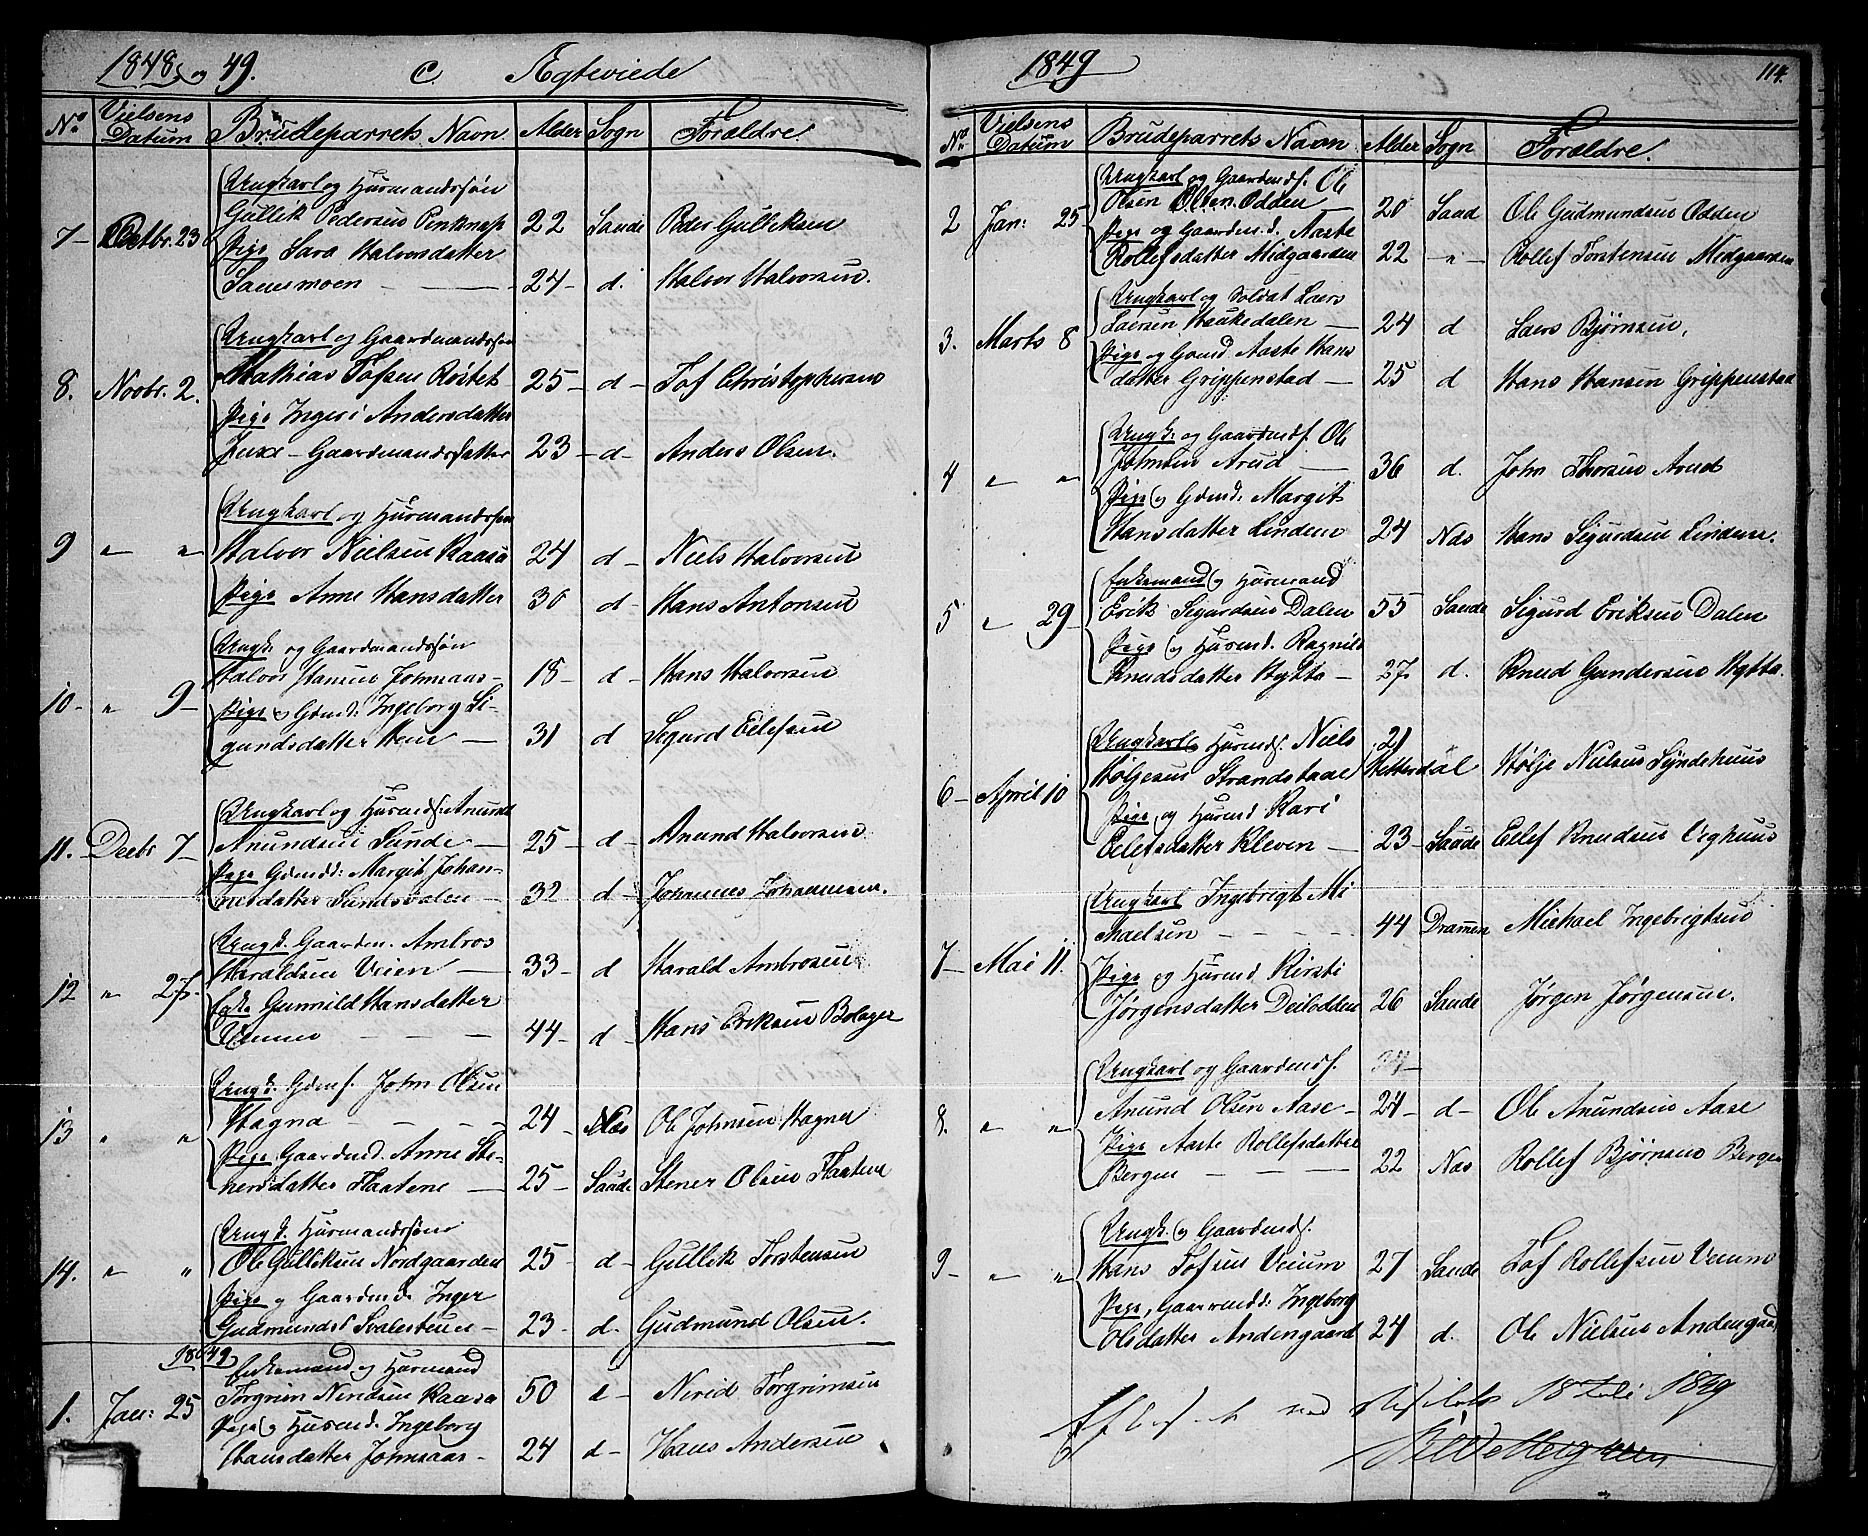 1848 og 49. C Ægteviede
No Vielsens Datum Brudeparrets Navn Alder Sogn Forældre.
Ungkarl og Huusmandssøn
7 Octbr. 23 Gullik Pedersen 22 Saude Peder Gulliksen
Pige Sara Halvorsdatter
Sanesmoen 24 d. Halvor Halvorsen.
Ungkarl og Gaardmandssøn
8. Novbr. 2. Mathias Tofsen Röitet 25 d Tof Christophersen
Pige Ingeri Andersdatter
Juxa Gaardmandsdatter 23 d Anders Olsen.
Ungkarl og Huusmandssøn
9 " " Halvor Nielsen Raasa 24 d Niels Halvorsen
Pige Anne Hansdatter 30 d Hans Antonsen
Ungk. og Gaardmandssøn
10 " 9 Halvor Hansen Johnsaas 18 d Hans Halvorsen
Pige og Gdmd: Ingeborg Si-
gurdsdatter Hem 31 d Sigurd Eilefsen
Ungkarl og Huusmds: Anund
11. Decbr 7 Anundsen Sunde 25 d Anund Halvorsen
Pige Gdmdd: Margit Johan-
nesdatter Sundsdalen 32 d Johannes Johannesen.
Ungk. Gaardm. Ambros
12 " 27. Haraldsen Veien 33 d Harald Ambrosen
Enke Gunnild Hansdatter
44 d Hans Eriksen Bolager
Ungk. Gdms. John Olsen
13 " " Hagna 24 Næs Ole Johnsen Hagna
Pige Gaardmd. Anne Ste-
nersdatter Flaatene 25 Saude Stener Olsen Flaatene
Ungk. Huusmandssøn
14. " " Ole Gulliksen Nordgaarden 25 d Gullik Torstensen
Pige og Gaardmd. Inger
Gudmundsd. Svalesteen 23 d. Gudmund Olsen.
1849
Enkemand og Huusmand
1. Jan: 25 Torgrim Neridsen Raasa 50 d Nirid Torgrimsen
Pige og Huusmd. Ingeborg
Hansdatter Johnsaas 24 d Hans Andersen
1849 114.
No Vielsens Datum Brudeparrets Navn Alder Sogn Forældre.
Ungkarl og Gaardmds. Ole
2 Jan: 25 Olsen Odden 20 Saud Ole Gudmundsen Odden
Pige og Gaardm.d. Aaste
Rollefsdatter Midgaarden 22 " Rollef Torstensen Midgaarden
Ungkarl og Soldat Laers
3. Marts 8 Laersen Haukedalen 24 d Laers Bjørnsen,
Pige og Gaamd Aaste Hans
datter Grippenstad 25 d Hans Hansen Grippenstad
Ungk. og Gaardmds. Ole
4 " " Johnsen Arud 36 d. John Thorsen Arud
Pige og Gdmd: Margit
Hansdatter Lindem 24 Næs Hans Sigurdsen Lindem.
Enkemand og Huusmand
5 " 29 Erik Sigurdsen Dalen 55 Saude Sigurd Eriksen Dalen
Pige og Huusmd. Ragnild
Knudsdatter Hytta 27 d. Knud Gundersen Hytta.
Ungkarl og Huusmds. Niels 21
6 April 10 Høljesen Strandstaae Hetterdal Hølje Nielsen Syndehuus
Pige, og Huusmd Kari
Eilefsdatter Kleven 23 Saude Eilef Knudsen
Ungkarl Ingebrigt Mi
chaelsen 44 Dramen Michael Ingebrigtsen
7 Mai 11. Pige og Huusmd Kirsti
Jørgensdatter Deilodden 26 Saude Jørgen Jørgensen.
Ungkarl og Gaardmds. 34
8. " " Anund Olsen Aase 24 d Ole Anundsen Aase
Pige Aaste Rollefsdatter
Bergen 22 Næs Rollef Bjørnsen Bergen
Ungk. og Gaardmds.
9 " " Hans Tofsen Veium 27 Saude Tof Rollefsen Veium
Pige, Gaardmdd: Ingeborg
Olsdatter Andengaard 24 d. Ole Nielsen Andengaard
18 Juli 1849